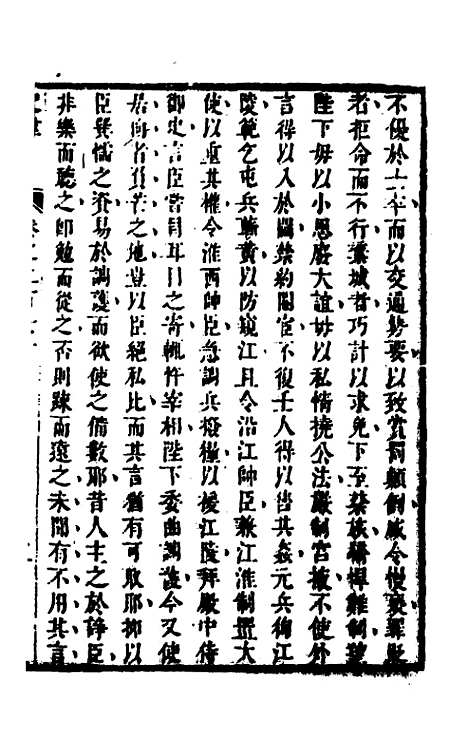 不優於士卒而以交通勢要以致賞罰顛倒威令慢褻罪貶
者拒命而不行棄城者巧計以求免下至禁族驕悍難制望
陛下毋以小恩廢大誼毋以私情撓公法嚴制宮掖不使外
言得以入於閫禁約閹宦不復壬人得以售其姦元兵徇江
陵範乞屯兵蘄黃以防窺江且令沿江帥臣兼江淮制置大
使以重其權令淮西帥臣急調兵撥糧以援江陵拜殿中侍
御史言臣嘗冒耳目之寄輒忤宰相陛下委曲調護今又使
居向者負芒之地豈以臣絕私比而其言猶有可取耶抑以
臣巽懦之資易於調護而欲使之備數耶昔人主之於諍臣
非樂而聽之卽勉而從之否則疎而遠之未聞有不用其言